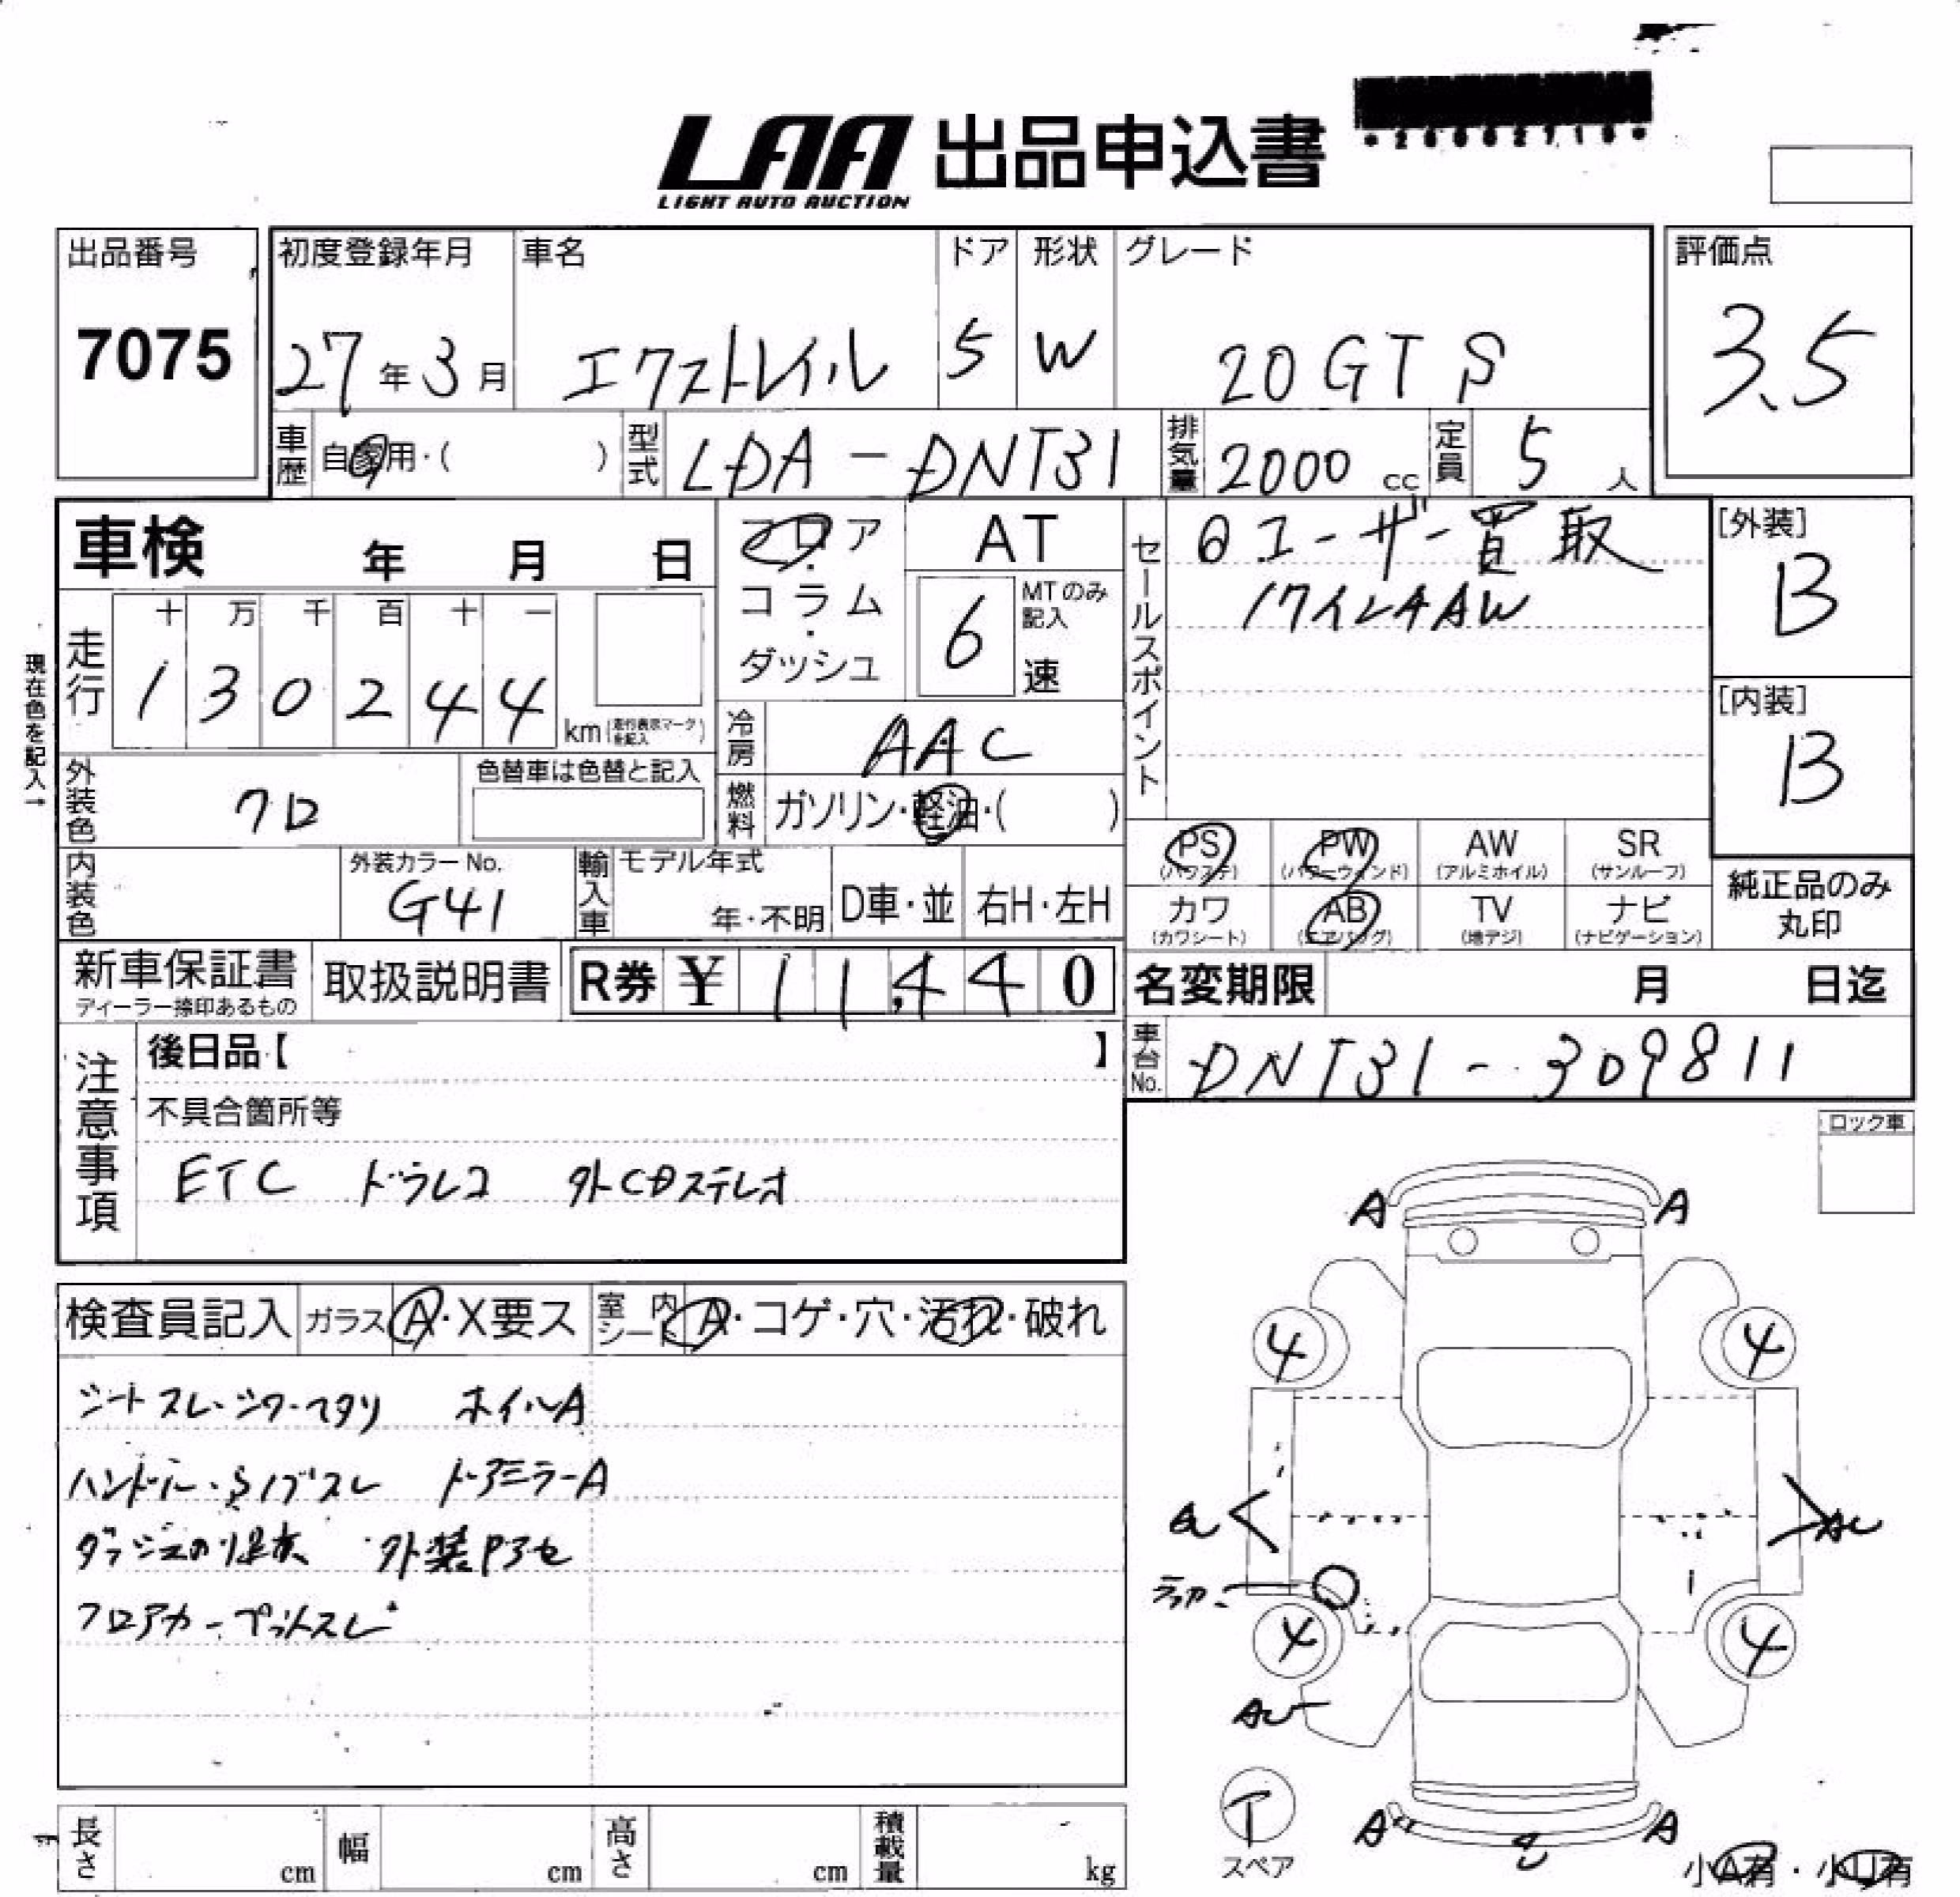 LAA 出品申込書
LIGHT AUTO AUCTION
出品番号 初度登録年月 車名 ドア 形状 グレード 評価点
7075 27年3月 エクストレイル 5 W 20GT S 3.5
車歴 自家用・( ) 型式 LDA-DNT31 排気量 2000 cc 定員 5 人
車検 年 月 日
フロア・コラム・ダッシュ
AT
6 MTのみ記入 速
セールスポイント
ユーザー買取
17インチAW
[外装]
B
[内装]
B
現在色を記入→
走行 十 万 千 百 十 一
1 3 0 2 4 4 km(走行表示マークを記入)
冷房 AAC
外装色 クロ 色替車は色替と記入
燃料 ガソリン・軽油・( )
内装色 外装カラーNo. G41
輸入車 モデル年式 年・不明 D車・並 右H・左H
PS (パワステ) PW (パワーウィンド) AW (アルミホイル) SR (サンルーフ)
カワ (カワシート) AB (エアバッグ) TV (地デジ) ナビ (ナビゲーション)
純正品のみ丸印
新車保証書 ディーラー捺印あるもの 取扱説明書 R券 ¥ 11,440
名変期限 月 日迄
車台No. DNT31-309811
注意事項
後日品【 】
不具合箇所等
ETC ドラレコ 外CDステレオ
ロック車
検査員記入 ガラス A・X要ス 室内シート A・コゲ・穴・汚れ・破れ
シートスレ・シワ・ヘタリ ホイルA
ハンドル・ノブスレ ドアミラーA
フロアカーペットスレ
A A
4 4
4 4
T
スペア
A A
小A有・小U有
長さ cm 幅 cm 高さ cm 積載量 kg